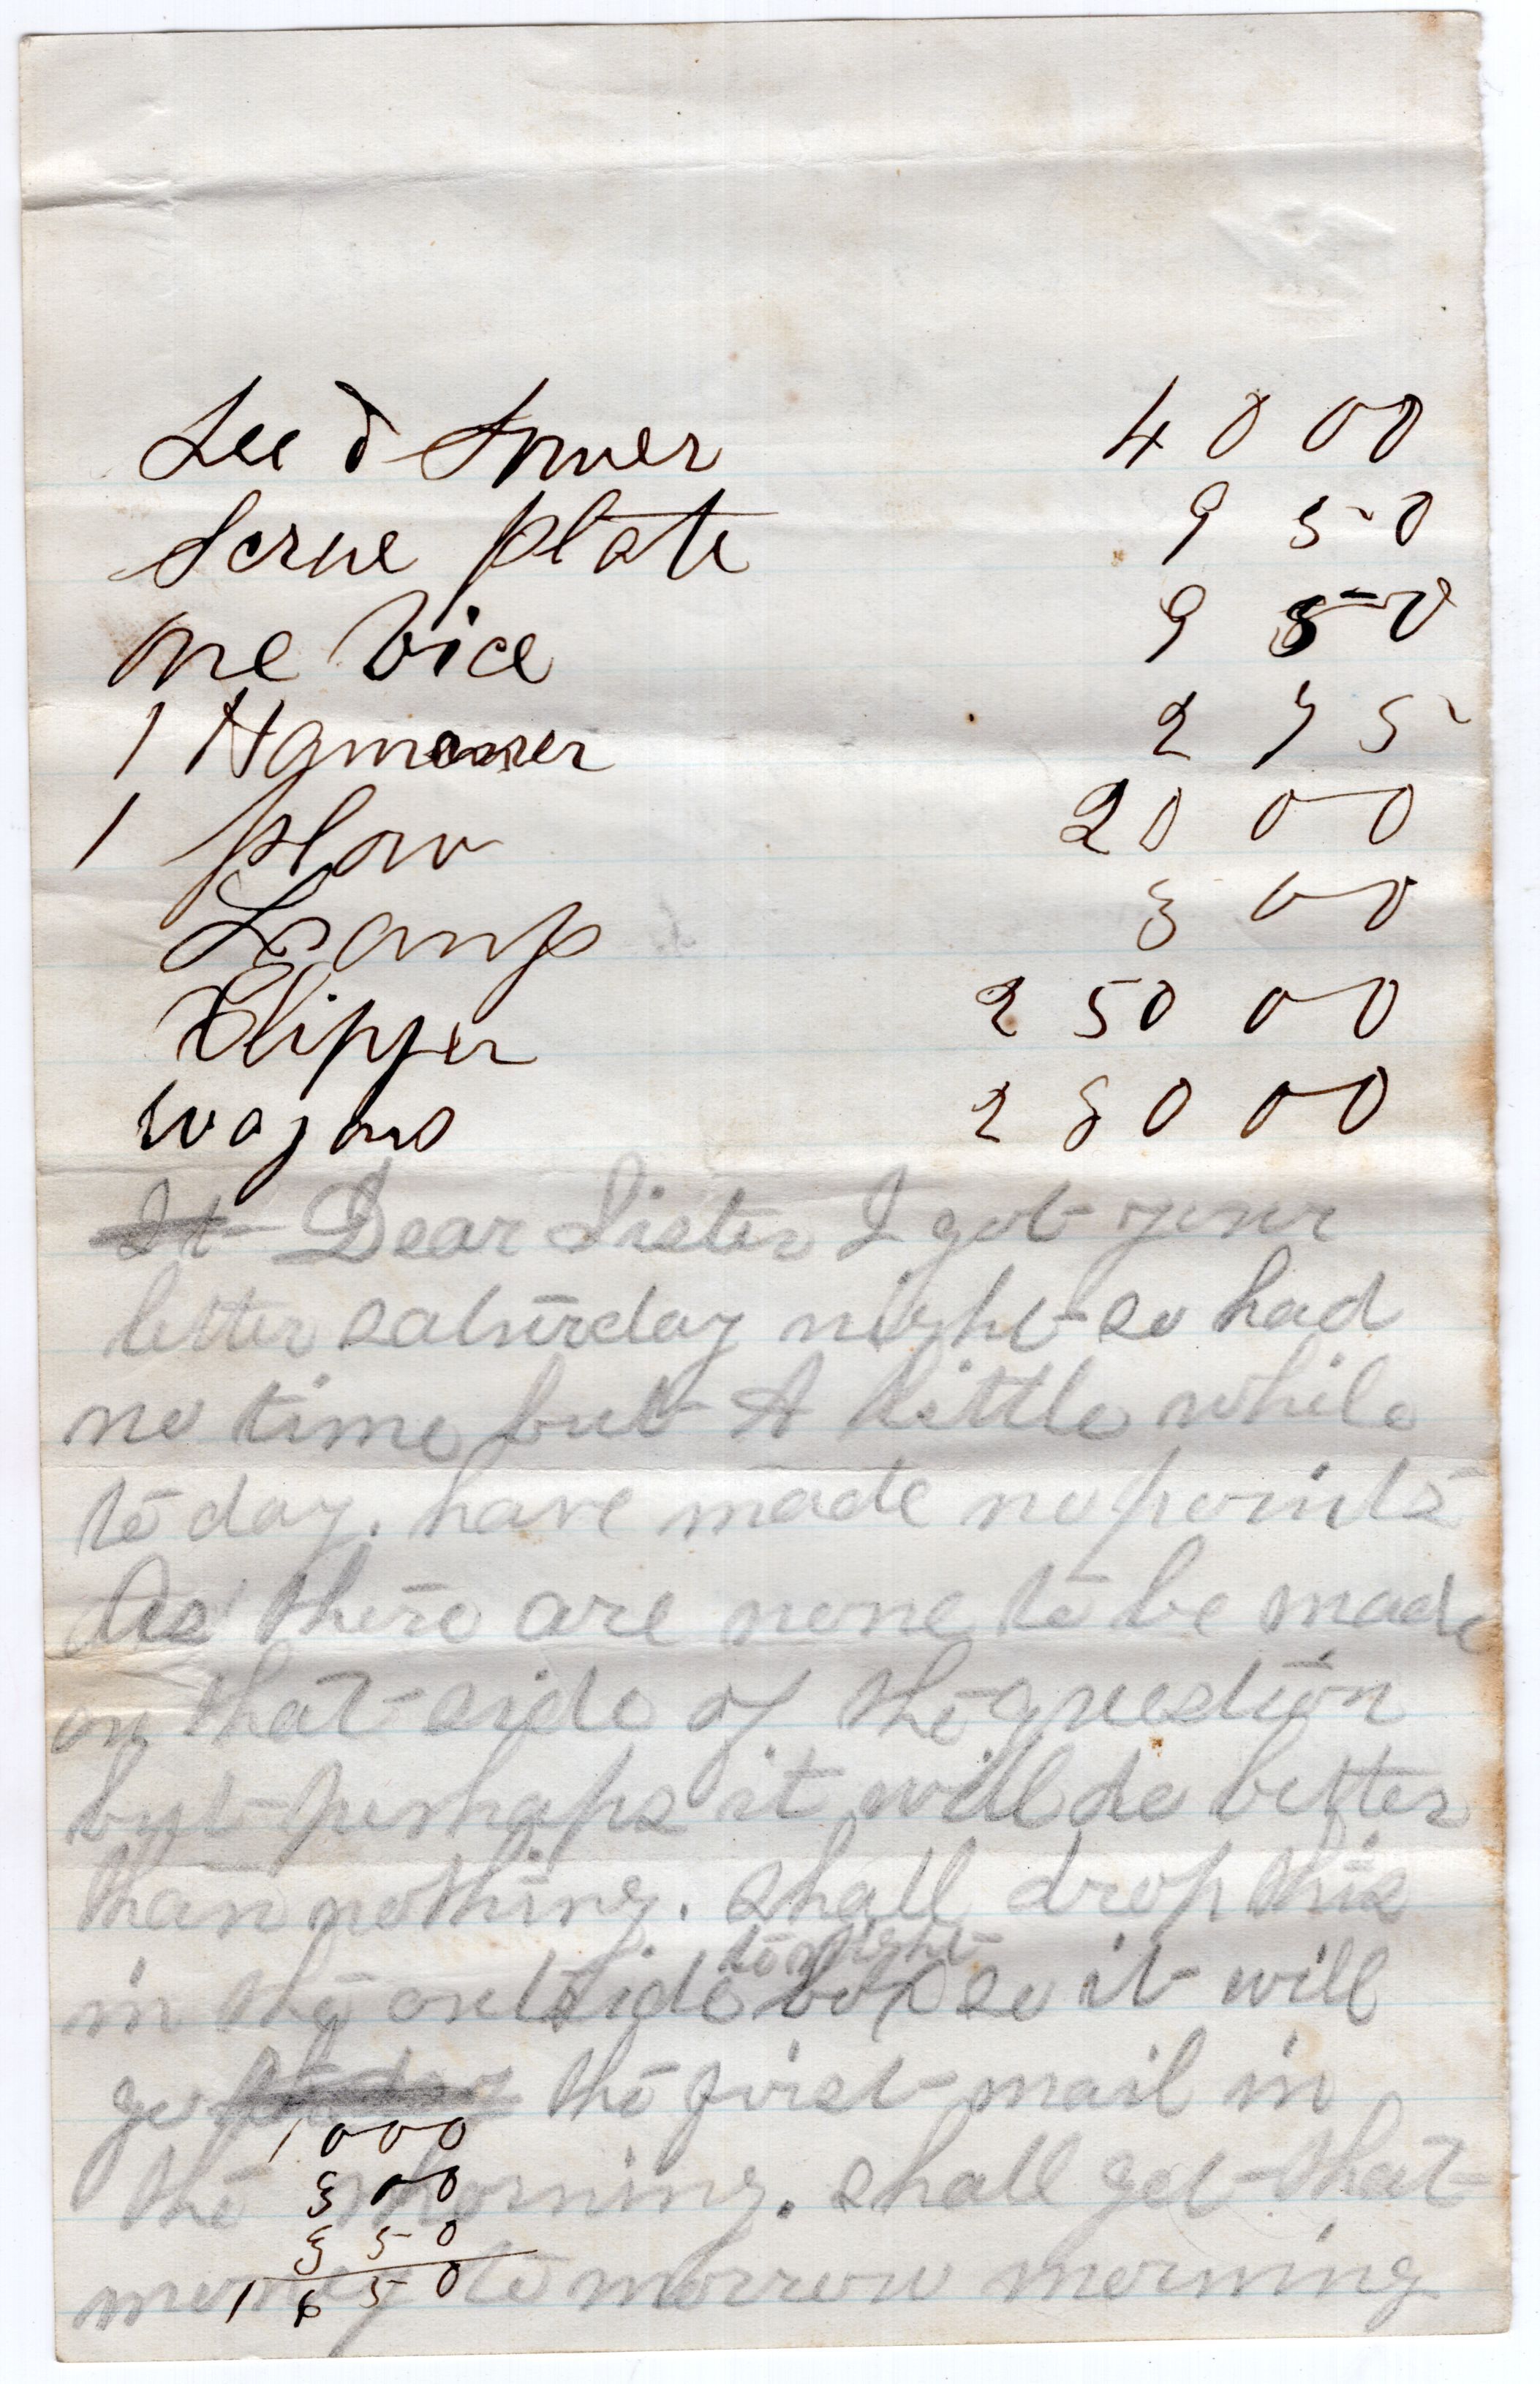 See d Sower 40 00
Scrue plate 9 50
one Vice 9 50
1 Hammer 2 75
1 plow 20 00
Lamp 3 00
Clipper 250 00
wagons 250 00
It Dear Sister I got your
letter saturday night so had
no time but A little while
to day. have made no points
As there are none to be made
on that side of the question
but perhaps it will do better
than nothing. shall drop this
in the outside box to night so it will
go to day the first mail in
the morning. shall get that
money to morrow morning
1000
300
350
1650